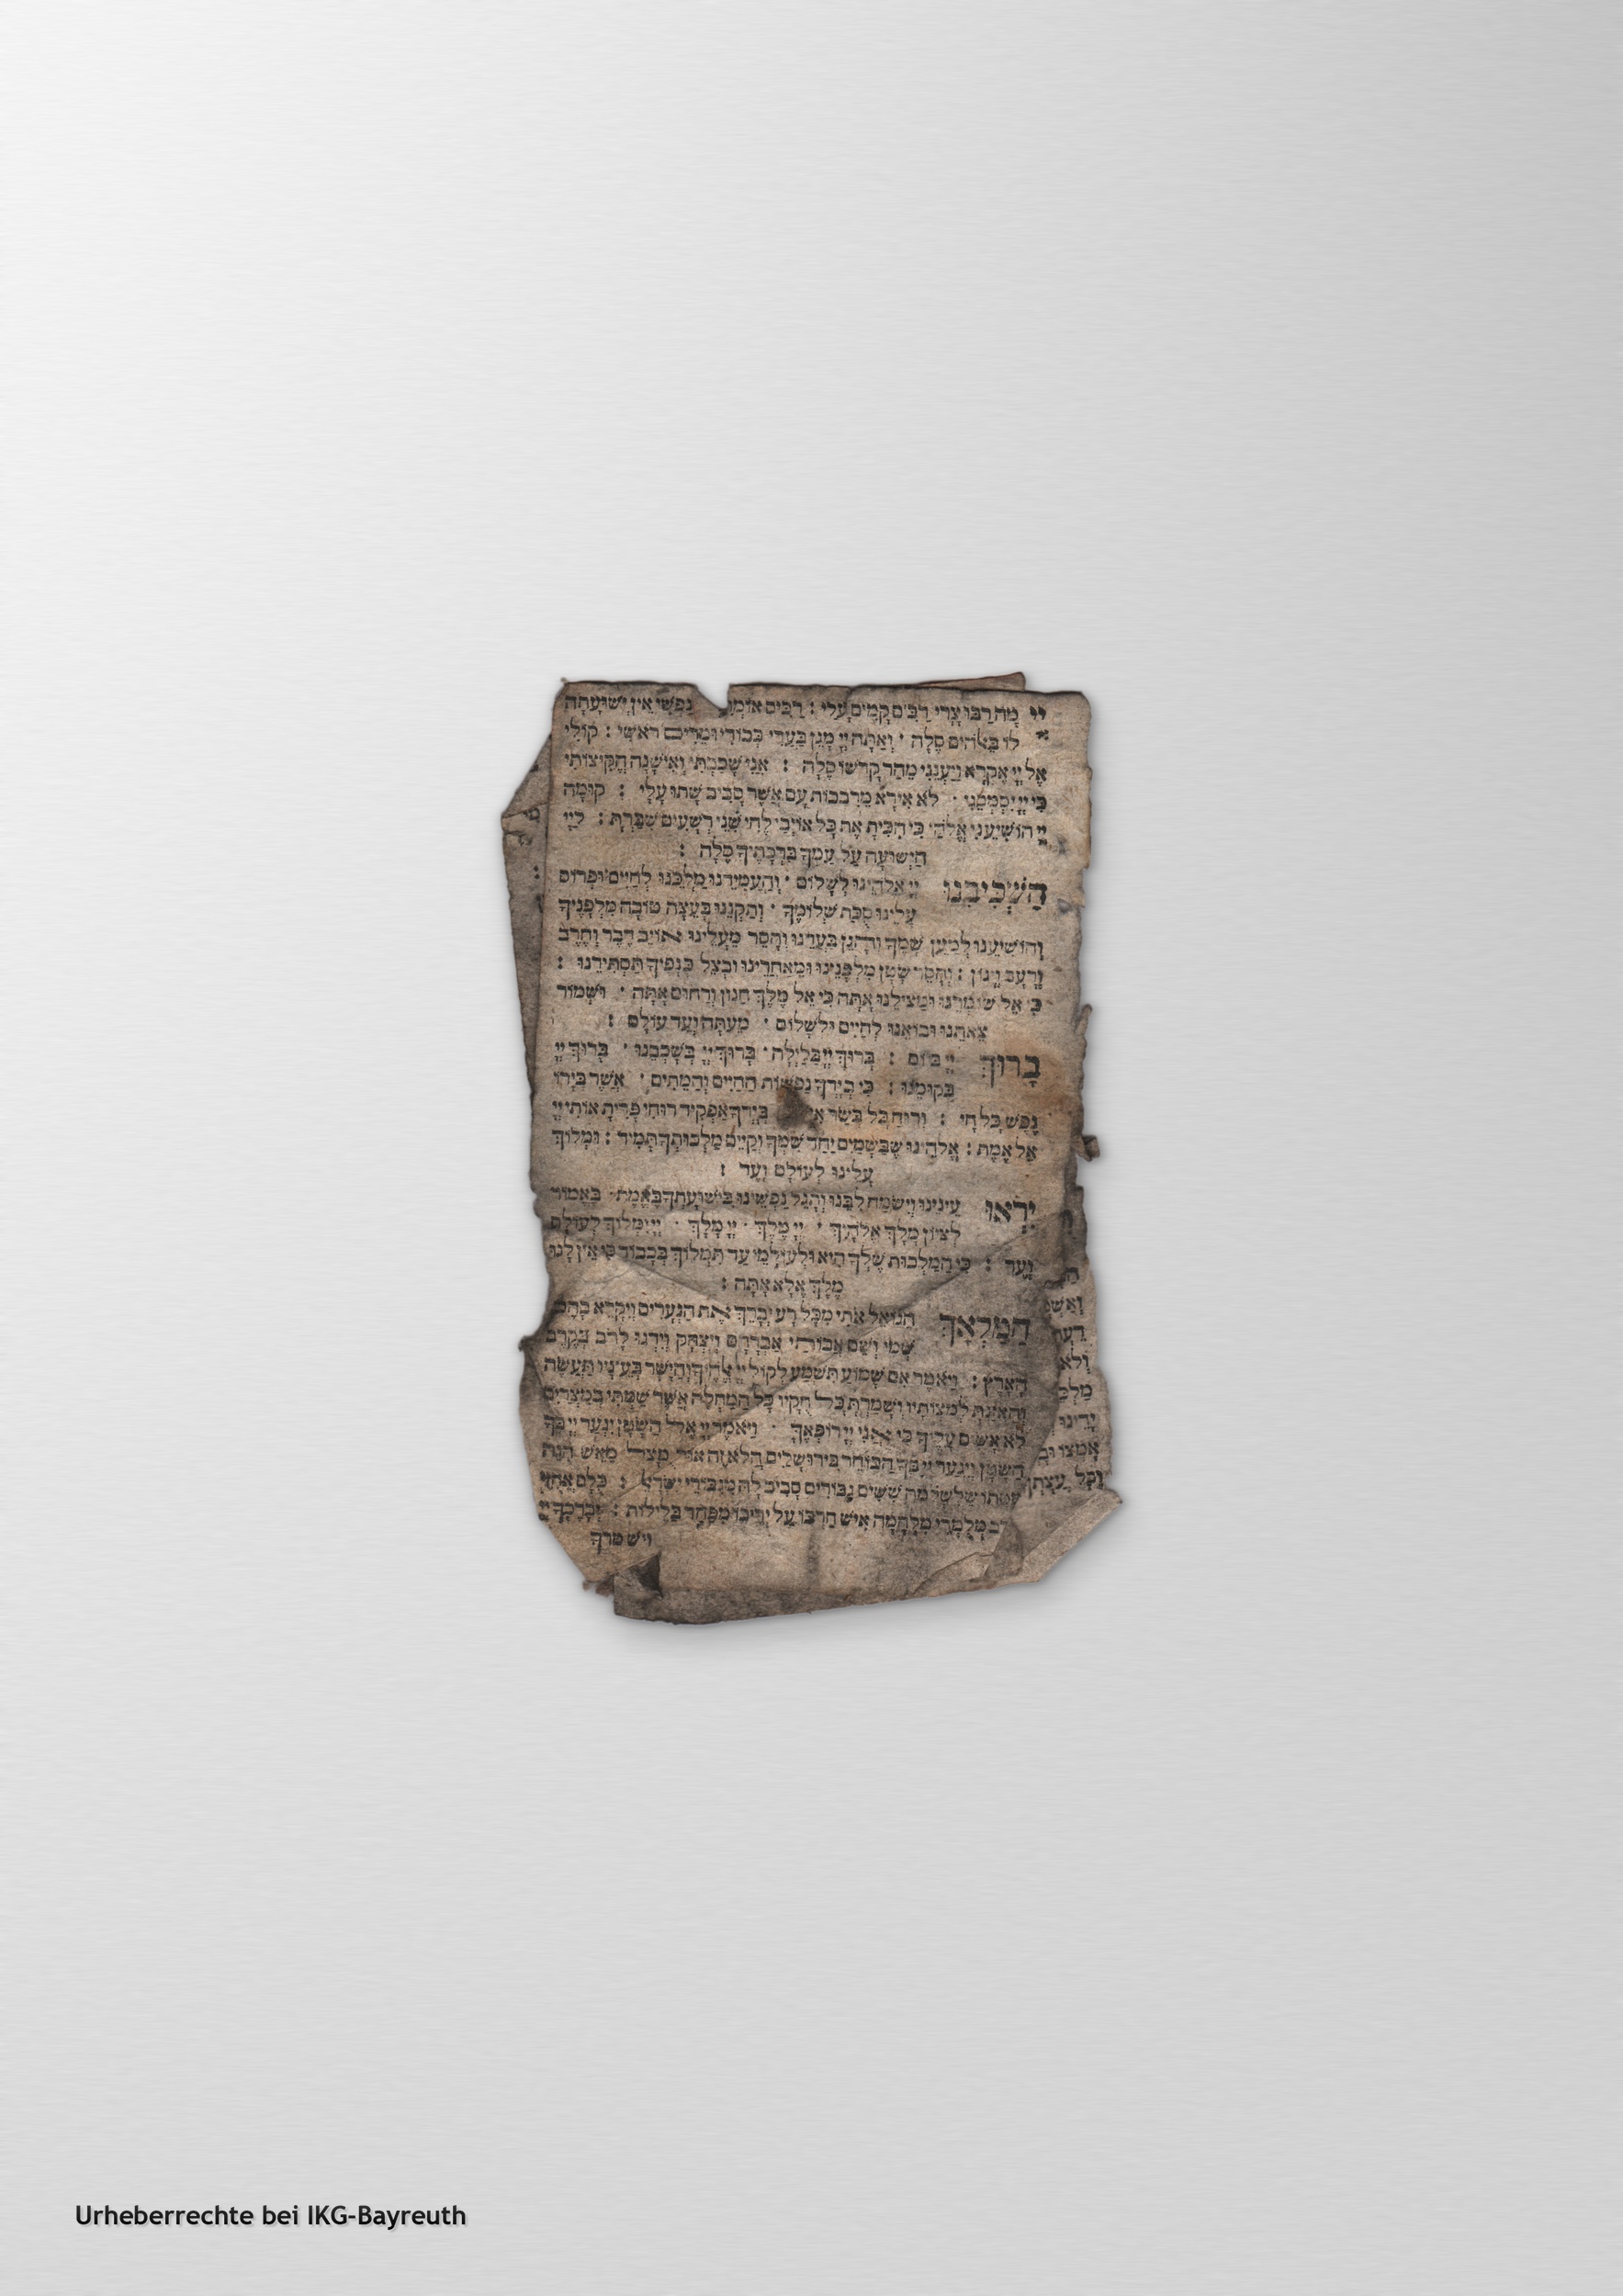 יְיָ מָה רַבּוּ צָרָי רַבִּים קָמִים עָלָי : רַבִּים אוֹמְרִים נַפְשִׁי אֵין יְשׁוּעָתָה
לוֹ בֵּאלֹהִים סֶלָה · וְאַתָּה יְיָ מָגֵן בַּעֲדִי כְּבוֹדִי וּמֵרִים רֹאשִׁי : קוֹלִי
אֶל יְיָ אֶקְרָא וַיַּעֲנֵנִי מֵהַר קָדְשׁוֹ סֶלָה : אֲנִי שָׁכַבְתִּי וָאִישָׁנָה הֱקִיצוֹתִי
כִּי יְיָ יִסְמְכֵנִי · לֹא אִירָא מֵרִבְבוֹת עָם אֲשֶׁר סָבִיב שָׁתוּ עָלָי : קוּמָה
יְיָ הוֹשִׁיעֵנִי אֱלֹהַי כִּי הִכִּיתָ אֶת כָּל אוֹיְבַי לֶחִי שִׁנֵּי רְשָׁעִים שִׁבַּרְתָּ : לַיְיָ
הַיְשׁוּעָה עַל עַמְּךָ בִרְכָתֶיךָ סֶּלָה :
הַשְׁכִּיבֵנוּ יְיָ אֱלֹהֵינוּ לְשָׁלוֹם · וְהַעֲמִידֵנוּ מַלְכֵּנוּ לְחַיִּים וּפְרוֹס
עָלֵינוּ סֻכַּת שְׁלוֹמֶךָ · וְתַקְּנֵנוּ בְּעֵצָה טוֹבָה מִלְּפָנֶיךָ
וְהוֹשִׁיעֵנוּ לְמַעַן שְׁמֶךָ וְהָגֵן בַּעֲדֵנוּ וְהָסֵר מֵעָלֵינוּ אוֹיֵב דֶּבֶר וְחֶרֶב
וְרָעָב וְיָגוֹן : וְהָסֵר שָׂטָן מִלְּפָנֵינוּ וּמֵאַחֲרֵינוּ וּבְצֵל כְּנָפֶיךָ תַּסְתִּירֵנוּ :
כִּי אֵל שׁוֹמְרֵנוּ וּמַצִּילֵנוּ אַתָּה כִּי אֵל מֶלֶךְ חַנּוּן וְרַחוּם אַתָּה · וּשְׁמוֹר
צֵאתֵנוּ וּבוֹאֵנוּ לְחַיִּים וּלְשָׁלוֹם · מֵעַתָּה וְעַד עוֹלָם :
בָּרוּךְ יְיָ בַּיּוֹם : בָּרוּךְ יְיָ בַּלַּיְלָה · בָּרוּךְ יְיָ בְּשָׁכְבֵנוּ · בָּרוּךְ יְיָ
בְּקוּמֵנוּ : כִּי בְיָדְךָ נַפְשׁוֹת הַחַיִּים וְהַמֵּתִים · אֲשֶׁר בְּיָדוֹ
נֶפֶשׁ כָּל חָי : וְרוּחַ כָּל בְּשַׂר בְּיָדְךָ אַפְקִיד רוּחִי פָּדִיתָ אוֹתִי יְיָ
אֵל אֱמֶת : אֱלֹהֵינוּ שֶׁבַּשָּׁמַיִם יַחֵד שִׁמְךָ וְקַיֵּים מַלְכוּתְךָ תָּמִיד : וּמְלוֹךְ
עָלֵינוּ לְעוֹלָם וָעֶד :
יִרְאוּ עֵינֵינוּ וְיִשְׂמַח לִבֵּנוּ וְתָגֵל נַפְשֵׁינוּ בִּישׁוּעָתְךָ בֶּאֱמֶת · בֶּאֱמוֹר
לְצִיּוֹן מָלַךְ אֱלֹהָיִךְ · יְיָ מֶלֶךְ · יְיָ מָלָךְ · יְיָ יִמְלוֹךְ לְעוֹלָם
וָעֶד : כִּי הַמַּלְכוּת שֶׁלְּךָ הִיא וּלְעוֹלְמֵי עַד תִּמְלוֹךְ בְּכָבוֹד כִּי אֵין לָנוּ
מֶלֶךְ אֶלָּא אָתָּה :
הַמַּלְאָךְ הַגּוֹאֵל אֹתִי מִכָּל רָע יְבָרֵךְ אֶת הַנְּעָרִים וְיִקָּרֵא בָהֶם
שְׁמִי וְשֵׁם אֲבוֹתַי אַבְרָהָם וְיִצְחָק וְיִדְגּוּ לָרֹב בְּקֶרֶב
הָאָרֶץ : וַיֹּאמֶר אִם שָׁמוֹעַ תִּשְׁמַע לְקוֹל יְיָ אֱלֹהֶיךָ וְהַיָּשָׁר בְּעֵינָיו תַּעֲשֶׂה
וְהַאֲזַנְתָּ לְמִצְוֹתָיו וְשָׁמַרְתָּ כָּל חֻקָּיו כָּל הַמַּחֲלָה אֲשֶׁר שַׂמְתִּי בְמִצְרַיִם
לֹא אָשִׂים עָלֶיךָ כִּי אֲנִי יְיָ רוֹפְאֶךָ · וַיֹּאמֶר יְיָ אֶל הַשָּׂטָן יִגְעַר יְיָ בְּךָ
הַשָּׂטָן וְיִגְעַר יְיָ בְּךָ הַבּוֹחֵר בִּירוּשָׁלַיִם הֲלֹא זֶה אוּד מֻצָּל מֵאֵשׁ הִנֵּה
מִטָּתוֹ שֶׁלִּשְׁלֹמֹה שִׁשִּׁים גִּבּוֹרִים סָבִיב לָהּ מִגִּבּוֹרֵי יִשְׂרָאֵל : כֻּלָּם אֲחֻזֵי
חֶרֶב מְלֻמְּדֵי מִלְחָמָה אִישׁ חַרְבּוֹ עַל יְרֵיכוֹ מִפַּחַד בַּלֵּילוֹת : יְבָרֶכְךָ יְיָ
וְיִשְׁמְרֶךָ
Urheberrechte bei IKG-Bayreuth